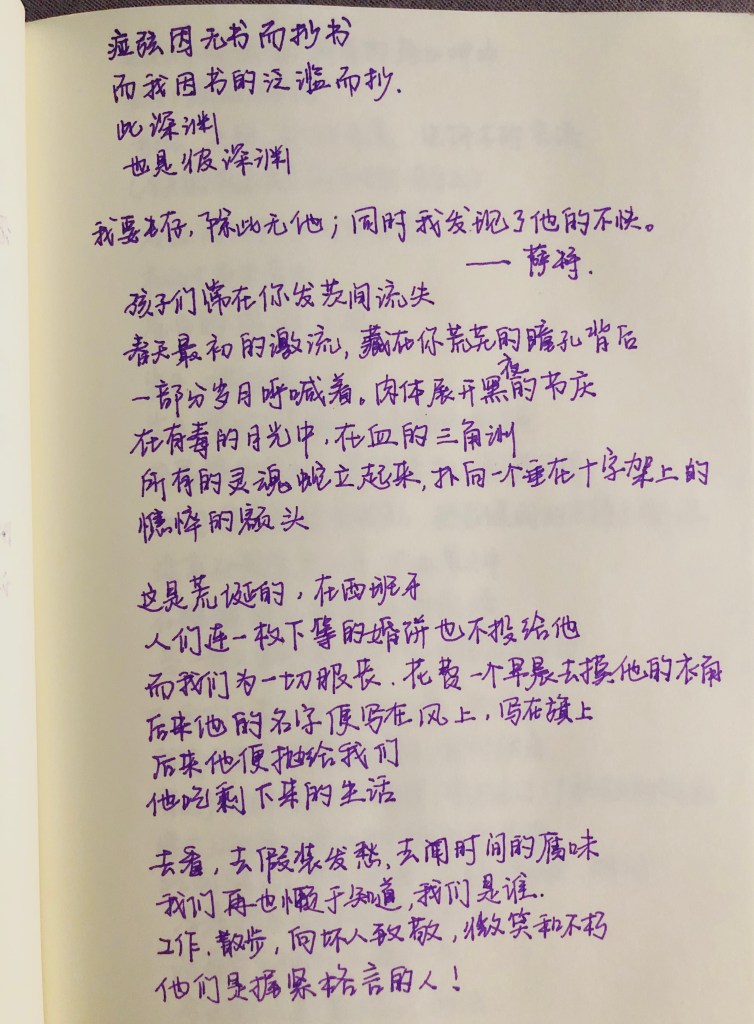 痖弦因无书而抄书
而我因书的泛滥而抄.
此深渊
也是彼深渊
我要生存,除此无他;同时我发现了他的不快。
——萨特.
孩子们常在你发茨间流失
春天最初的激流,藏在你荒芜的瞳孔背后
一部分岁月呼喊着。肉体展开黑夜的节庆
在有毒的月光中,在血的三角洲
所有的灵魂蛇立起来,扑向一个垂在十字架上的
憔悴的额头
这是荒诞的,在西班牙
人们连一枚下等的婚饼也不投给他
而我们为一切服丧.花费一个早晨去摸他的衣角
后来他的名字便写在风上,写在旗上
后来他便抛给我们
他吃剩下来的生活
去看,去假装发愁,去闻时间的腐味
我们再也懒于知道,我们是谁.
工作,散步,向坏人致敬,微笑和不朽
他们是握紧格言的人!